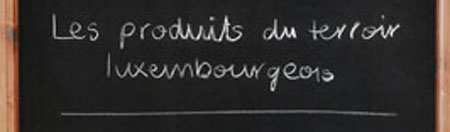 Les produits du terroir
luxembourgeois